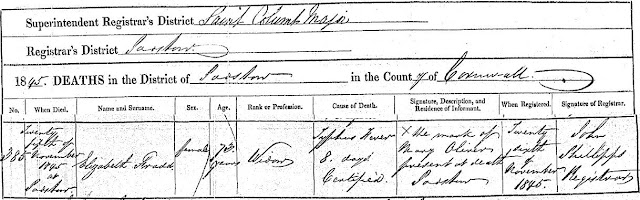 Superintendent Registrar's District Saint Columb Major
Registrar's District Padstow
1845. DEATHS in the District of Padstow in the Count y of Cornwall
No. When Died. Name and Surname. Sex. Age. Rank or Profession. Cause of Death. Signature, Description, and Residence of Informant. When Registered. Signature of Registrar.
385 Twenty fifth of November 1845 at Padstow
Elizabeth
female
years
Widow
Typhus Fever 8 days Certified
X The mark of Mary Oliver present at death Padstow
Twenty sixth of November 1845.
John Phillipps Registrar